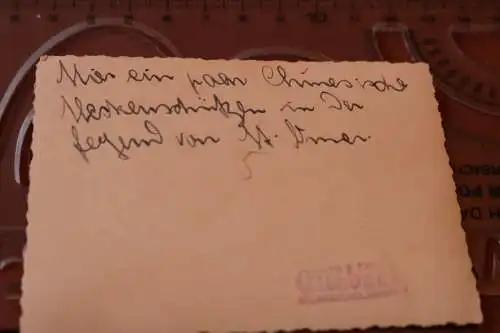 Nur ein paar Chinesische
Heckenschützen in der
Gegend von St. Omer.
5